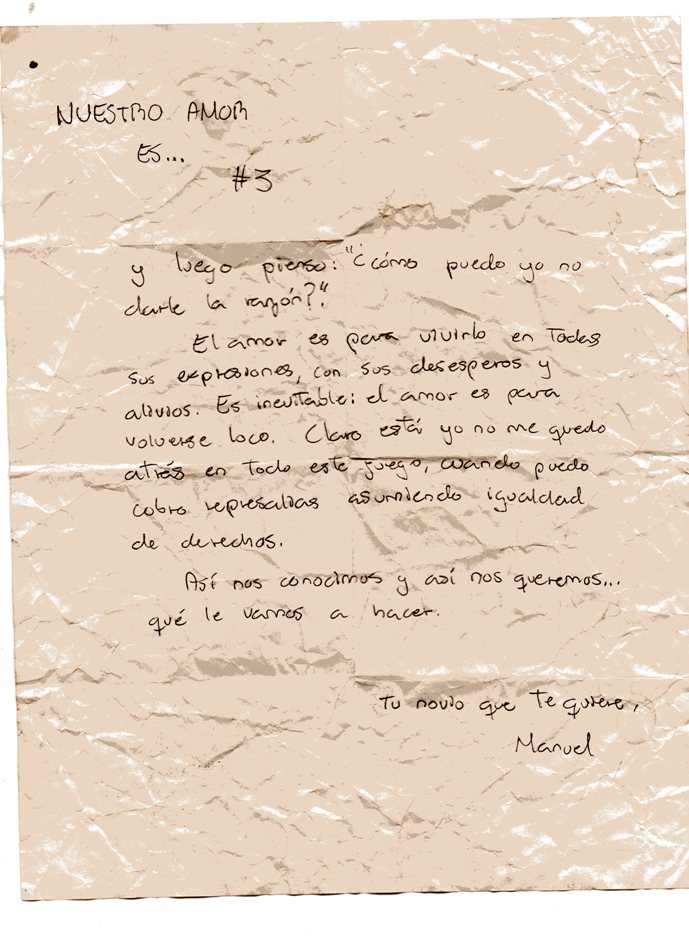 NUESTRO AMOR
ES...
#3
y luego pienso: "¿cómo puedo yo no
darle la razón?".
El amor es para vivirlo en todas
sus expresiones, con sus desesperos y
alivios. Es inevitable: el amor es para
volverse loco. Claro está yo no me quedo
atrás en todo este juego, cuando puedo
cobro represalias asumiendo igualdad
de derechos.
Así nos conocimos y así nos queremos...
qué le vamos a hacer.
Tu novio que te quiere,
Manuel